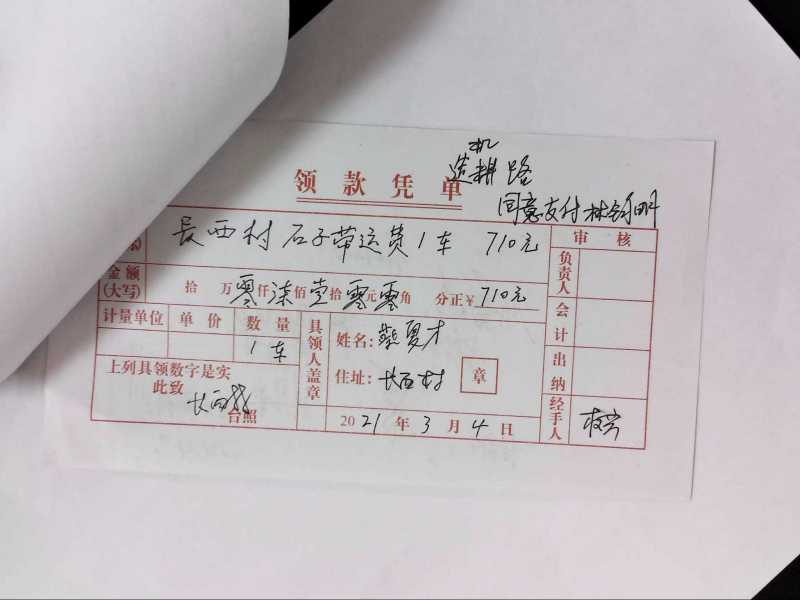 机
造耕路
领款凭单
同意支付 林
长西村 石子带运费1车 710元
审核
负责人
金额(大写) 拾 万零仟柒佰壹拾零元零角 分正¥710元
会计
计量单位 单价 数量
1车
具领人盖章
姓名: 夏才
住址: 长西村 章
出纳
上列具领数字是实
此致
长西村
台照
2021年3月4日
经手人